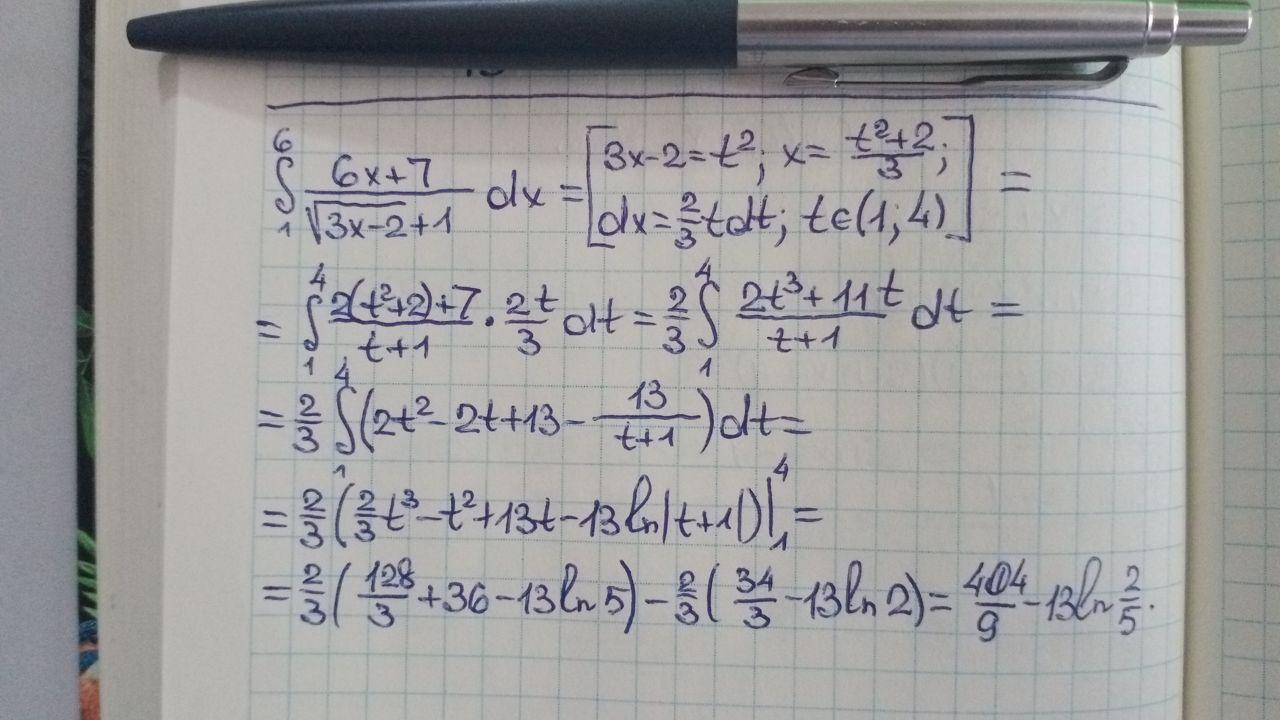 ∫₁⁶ (6x+7)/(√(3x-2)+1) dx = [3x-2=t²; x=(t²+2)/3; dx=2/3 tdt; t∈(1; 4)] =
= ∫₁⁴ (2(t²+2)+7)/(t+1) · 2t/3 dt = 2/3 ∫₁⁴ (2t³+11t)/(t+1) dt =
= 2/3 ∫₁⁴ (2t²-2t+13-13/(t+1)) dt =
= 2/3 (2/3 t³-t²+13t-13 ln|t+1|)|₁⁴ =
= 2/3 (128/3+36-13 ln 5) - 2/3 (34/3-13 ln 2) = 404/9 - 13 ln 2/5.